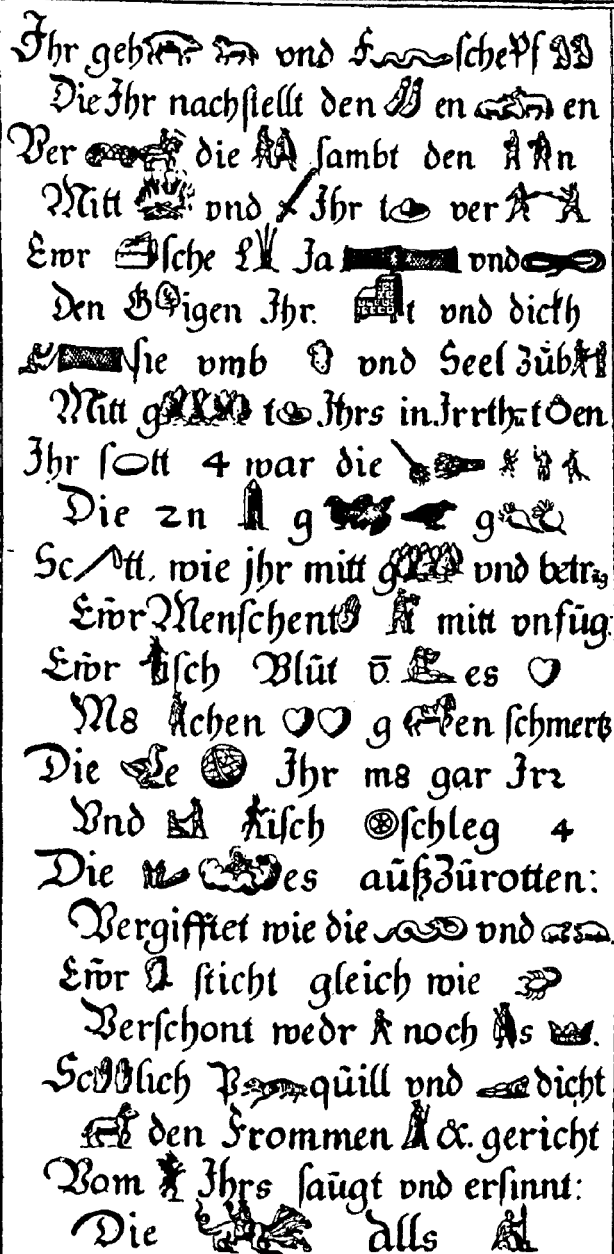 Ihr geh und F schepf
Die Ihr nachstellt den en en
Ver die sambt den n
Mitt vnd Ihr t ver
Ewr sche L Ja vnd
Den G igen Ihr. t vnd dickh
sie vmb vnd Seel zůb
Mitt g t Ihrs in Irrth: t en
Ihr s tt 4 war die
Die 2n g g
Sc tt, wie jhr mitt g vnd betrüg
Ewr Menschent mitt vnfüg:
Ewr isch Blůt v̄ es
M8 chen g en schmertz
Die e Ihr m8 gar Irz
Vnd isch schleg 4
Die es außzůrotten:
Vergifftet wie die vnd
Ewr sticht gleich wie
Verschont wedr noch s .
Sc lich P quill vnd dicht
den Frommen &. gericht
Vom Ihrs saügt vnd ersinnt:
Die alls